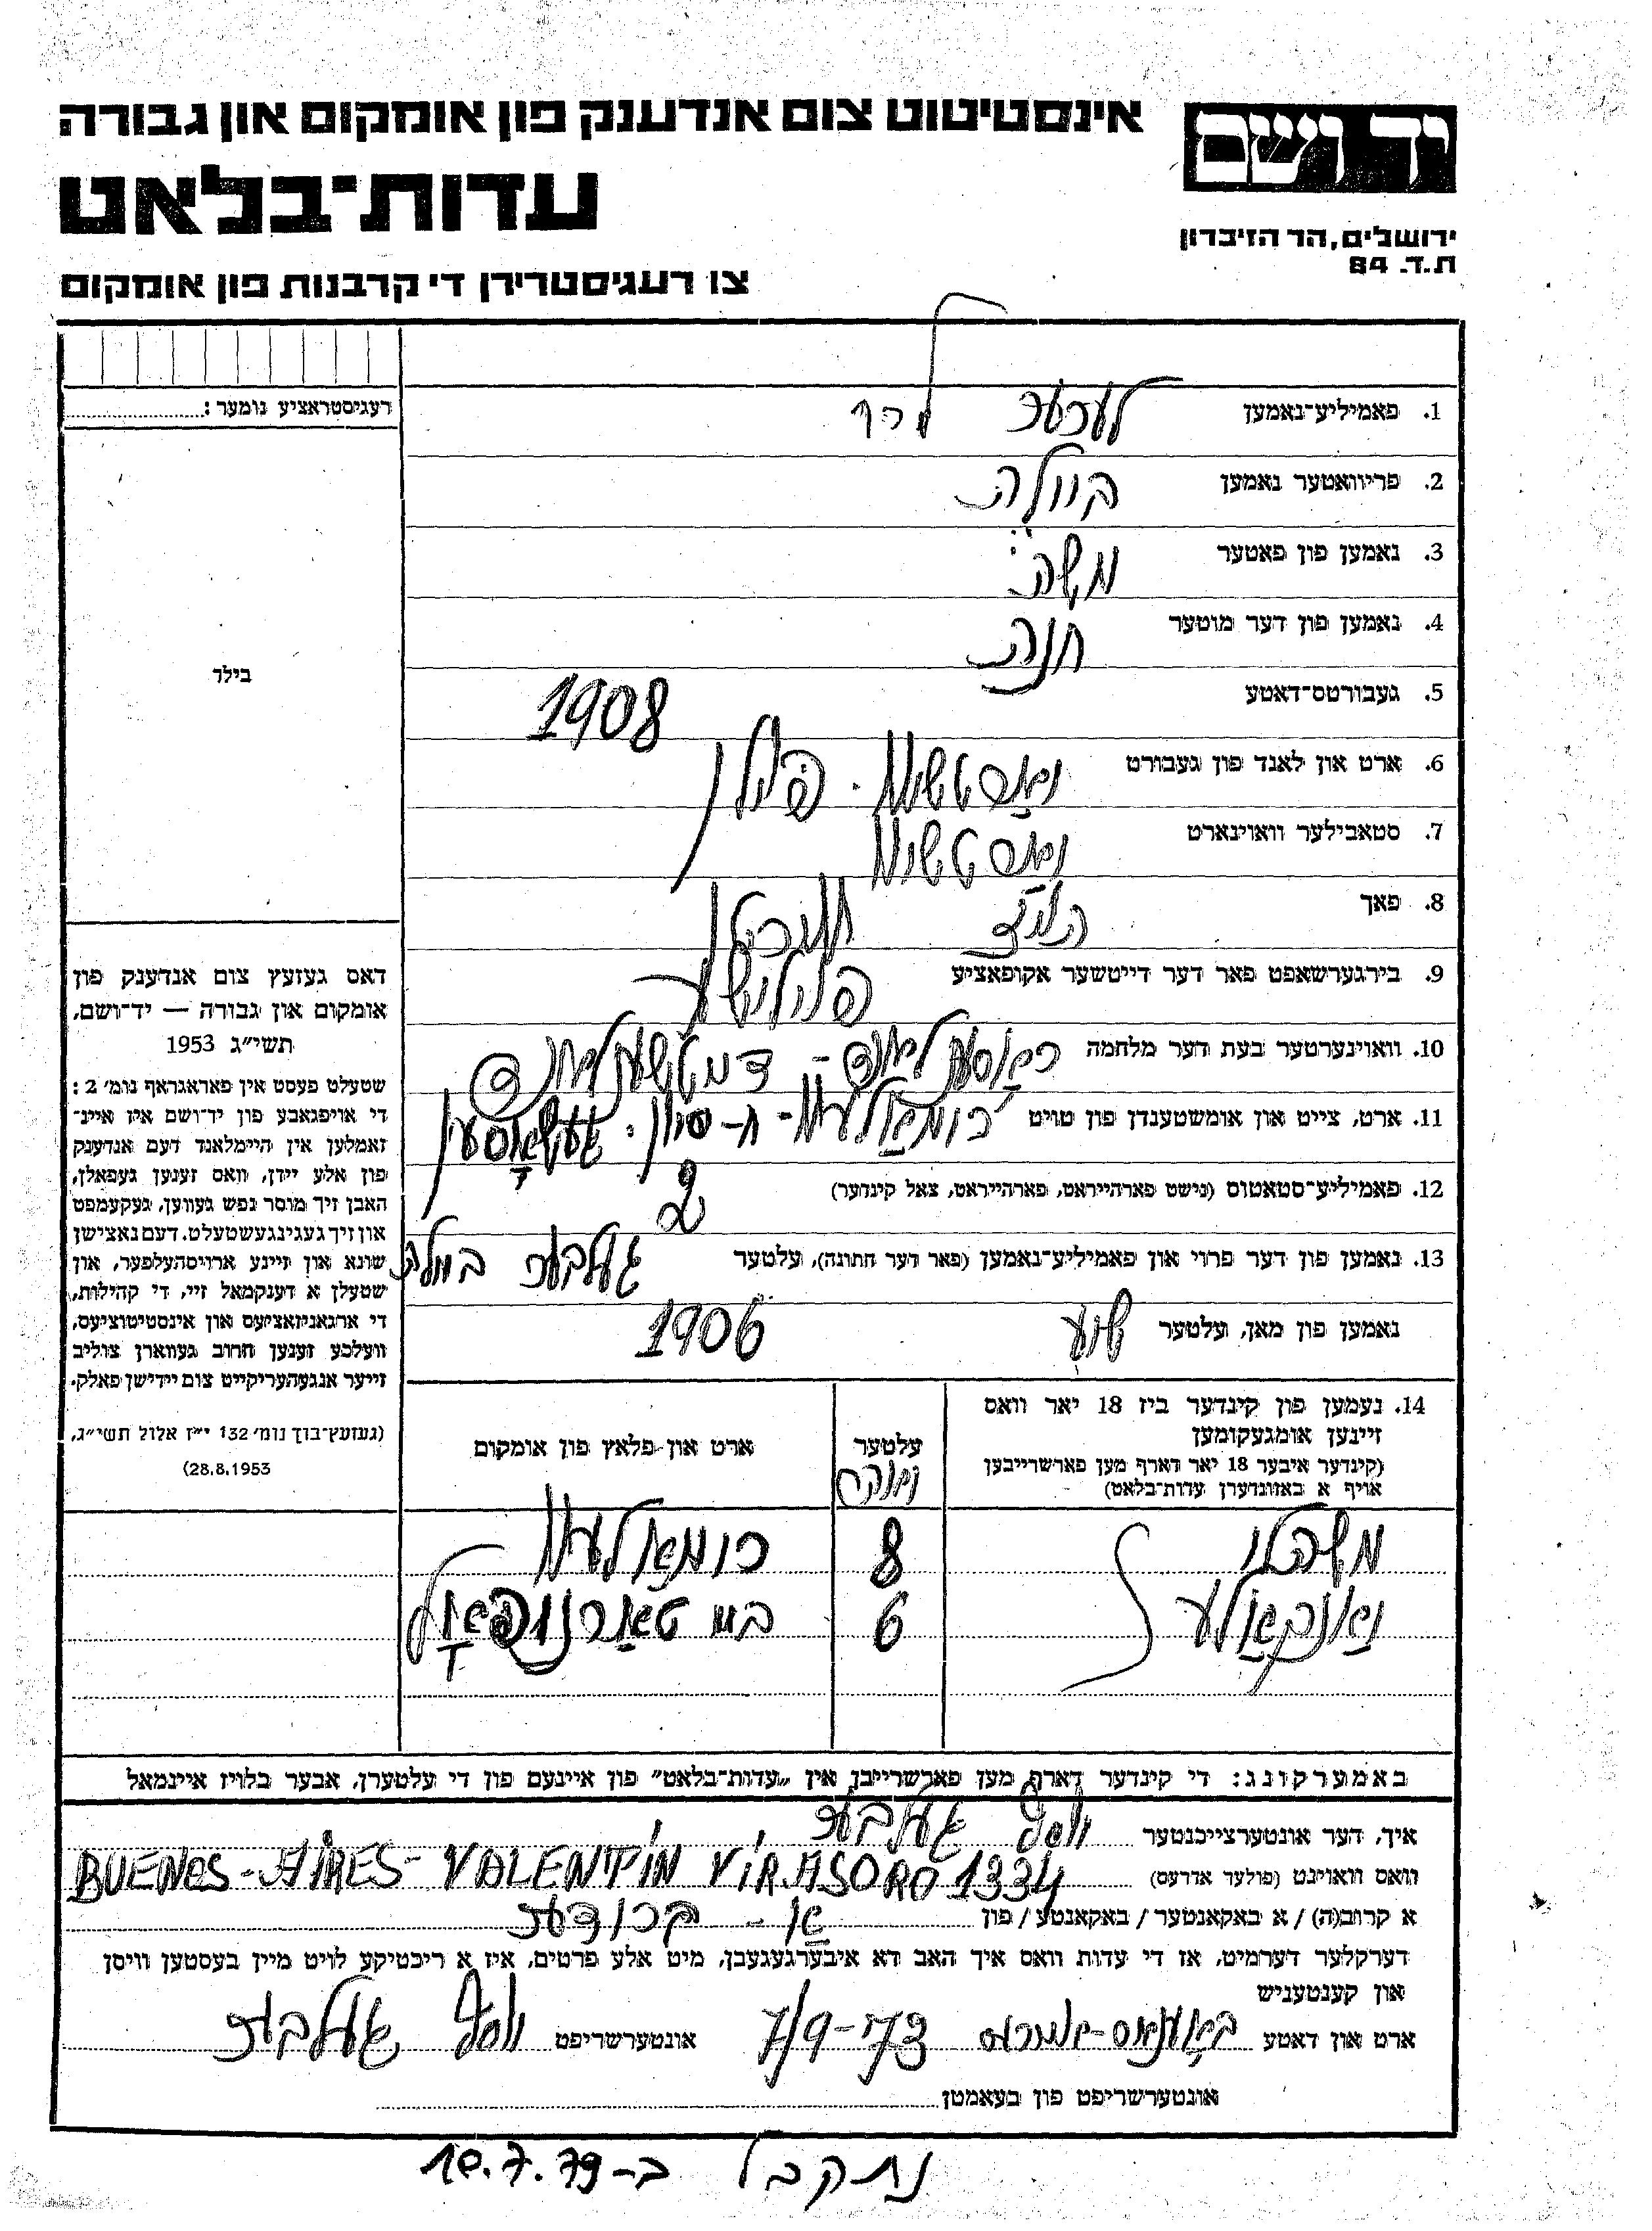 אינסטיטוט צום אנדענק פון אומקום און גבורה
יד ושם
עדות־בלאט
ירושלים, הר הזיכרון
ת.ד. 84
צו רעגיסטרירן די קרבנות פון אומקום
רעגיסטראציע נומער:
1. פאמיליע־נאמען
2. פריוואטער נאמען ביילה
3. נאמען פון פאטער משה
4. נאמען פון דער מוטער חנה
5. געבורטס־דאטע 1908
בילד
6. ארט און לאנד פון געבורט פוילן
7. סטאבילער וואוינארט
8. פאך
9. בירגערשאפט פאר דער דייטשער אקופאציע פוילישע
10. וואוינערטער בעת דער מלחמה רוסלאנד - דייטשלאנד
11. ארט, צייט און אומשטענדן פון טויט
12. פאמיליע־סטאטוס (נישט פארהייראט, פארהייראט, צאל קינדער) 2
13. נאמען פון דער פרוי און פאמיליע־נאמען (פאר דער חתונה), עלטער געלבער ביילה
נאמען פון מאן, עלטער 1906
דאס געזעץ צום אנדענק פון
אומקום און גבורה — יד־ושם,
תשי״ג 1953
שטעלט פעסט אין פאראגראף נומ׳ 2:
די אויפגאבע פון יד־ושם איז איינ־
זאמלען אין היימלאנד דעם אנדענק
פון אלע יידן, וואס זענען געפאלן,
האבן זיך מוסר נפש געווען, געקעמפט
און זיך געגינגעשטעלט דעם נאצישן
שונא און זיינע ארויסהעלפער, און
שטעלן א דענקמאל זיי, די קהילות,
די ארגאניזאציעס און אינסטיטוציעס,
וועלכע זענען חרוב געווארן צוליב
זייער אנגעהעריקייט צום יידישן פאלק.
(געזעץ־בוך נומ׳ 132 י״ז אלול תשי״ג,
28.8.1953)
14. נעמען פון קינדער ביז 18 יאר וואס
זיינען אומגעקומען
(קינדער איבער 18 יאר דארף מען פארשרייבן
אויף א באזונדערן עדות־בלאט)
עלטער
ארט און פלאץ פון אומקום
8
6 ביי טארנופאל
באמערקונג: די קינדער דארף מען פארשרייבן אין „עדות־בלאט״ פון איינעם פון די עלטערן, אבער בלויז איינמאל
איך, דער אונטערצייכנטער יוסף געלבער
וואס וואוינט (פולער אדרעס) BUENOS-AIRES- VALENTIN VIRASORO 1334
א קרוב(ה) / א באקאנטער / באקאנטע / פון א - ברודער
דערקלער דערמיט, אז די עדות וואס איך האב דא איבערגעגעבן, מיט אלע פרטים, איז א ריכטיקע לויט מיין בעסטען וויסן
און קענטעניש
ארט און דאטע בוענאס-איירעס 7/9-73 אונטערשריפט יוסף געלבער
אונטערשריפט פון בעאמטן
נתקבל ב-10.7.79